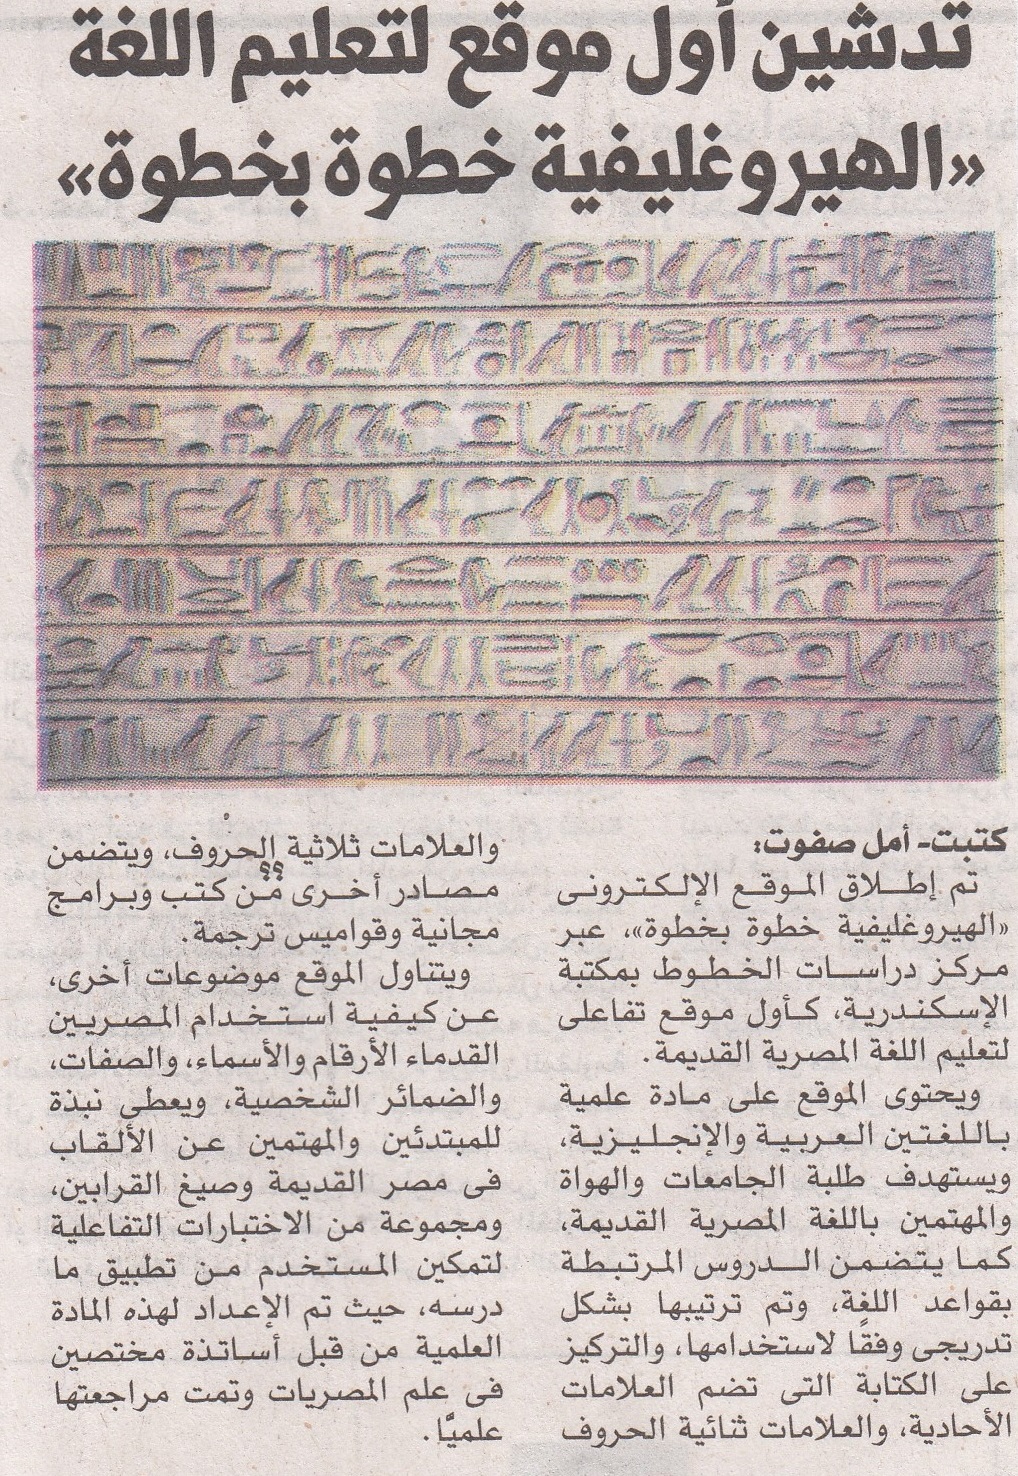 تدشين أول موقع لتعليم اللغة
«الهيروغليفية خطوة بخطوة»
كتبت- أمل صفوت:
تم إطلاق الموقع الإلكترونى
«الهيروغليفية خطوة بخطوة»، عبر
مركز دراسات الخطوط بمكتبة
الإسكندرية، كأول موقع تفاعلى
لتعليم اللغة المصرية القديمة.
ويحتوى الموقع على مادة علمية
باللغتين العربية والإنجليزية،
ويستهدف طلبة الجامعات والهواة
والمهتمين باللغة المصرية القديمة،
كما يتضمن الدروس المرتبطة
بقواعد اللغة، وتم ترتيبها بشكل
تدريجى وفقًا لاستخدامها، والتركيز
على الكتابة التى تضم العلامات
الأحادية، والعلامات ثنائية الحروف
والعلامات ثلاثية الحروف، ويتضمن
مصادر أخرى من كتب وبرامج
مجانية وقواميس ترجمة.
ويتناول الموقع موضوعات أخرى،
عن كيفية استخدام المصريين
القدماء الأرقام والأسماء، والصفات،
والضمائر الشخصية، ويعطى نبذة
للمبتدئين والمهتمين عن الألقاب
فى مصر القديمة وصيغ القرابين،
ومجموعة من الاختبارات التفاعلية
لتمكين المستخدم من تطبيق ما
درسه، حيث تم الإعداد لهذه المادة
العلمية من قبل أساتذة مختصين
فى علم المصريات وتمت مراجعتها
علميًّا.